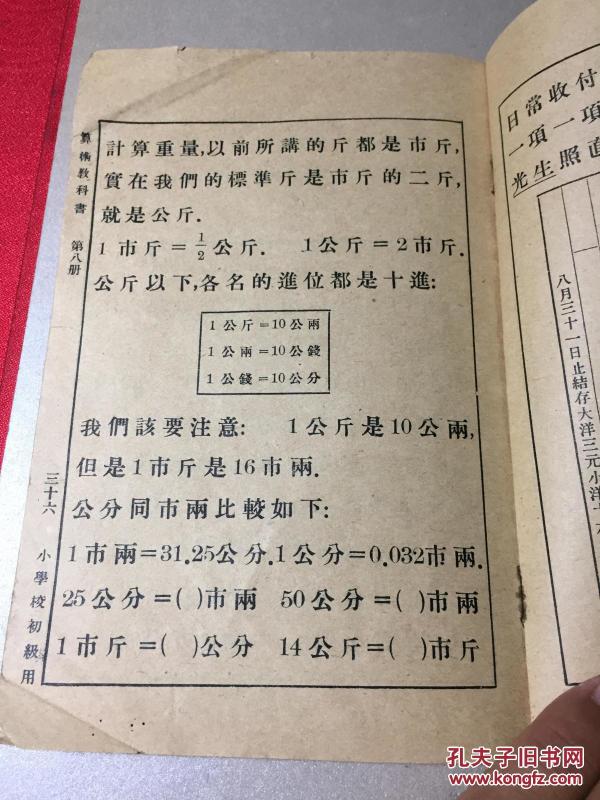 算術教科書 第八册
三十六 小學校初級用
計算重量,以前所講的斤都是市斤,
實在我們的標準斤是市斤的二斤,
就是公斤.
1市斤=1/2公斤. 1公斤=2市斤.
公斤以下,各名的進位都是十進:
1公斤=10公兩
1公兩=10公錢
1公錢=10公分
我們該要注意: 1公斤是10公兩,
但是1市斤是16市兩.
公分同市兩比較如下:
1市兩=31.25公分.1公分=0.032市兩.
25公分=( )市兩 50公分=( )市兩
1市斤=( )公分 14公斤=( )市斤
日常收付
一項一項
光生照直
八月三十一日止結存大洋三元小洋
孔夫子旧书网
www.kongfz.com